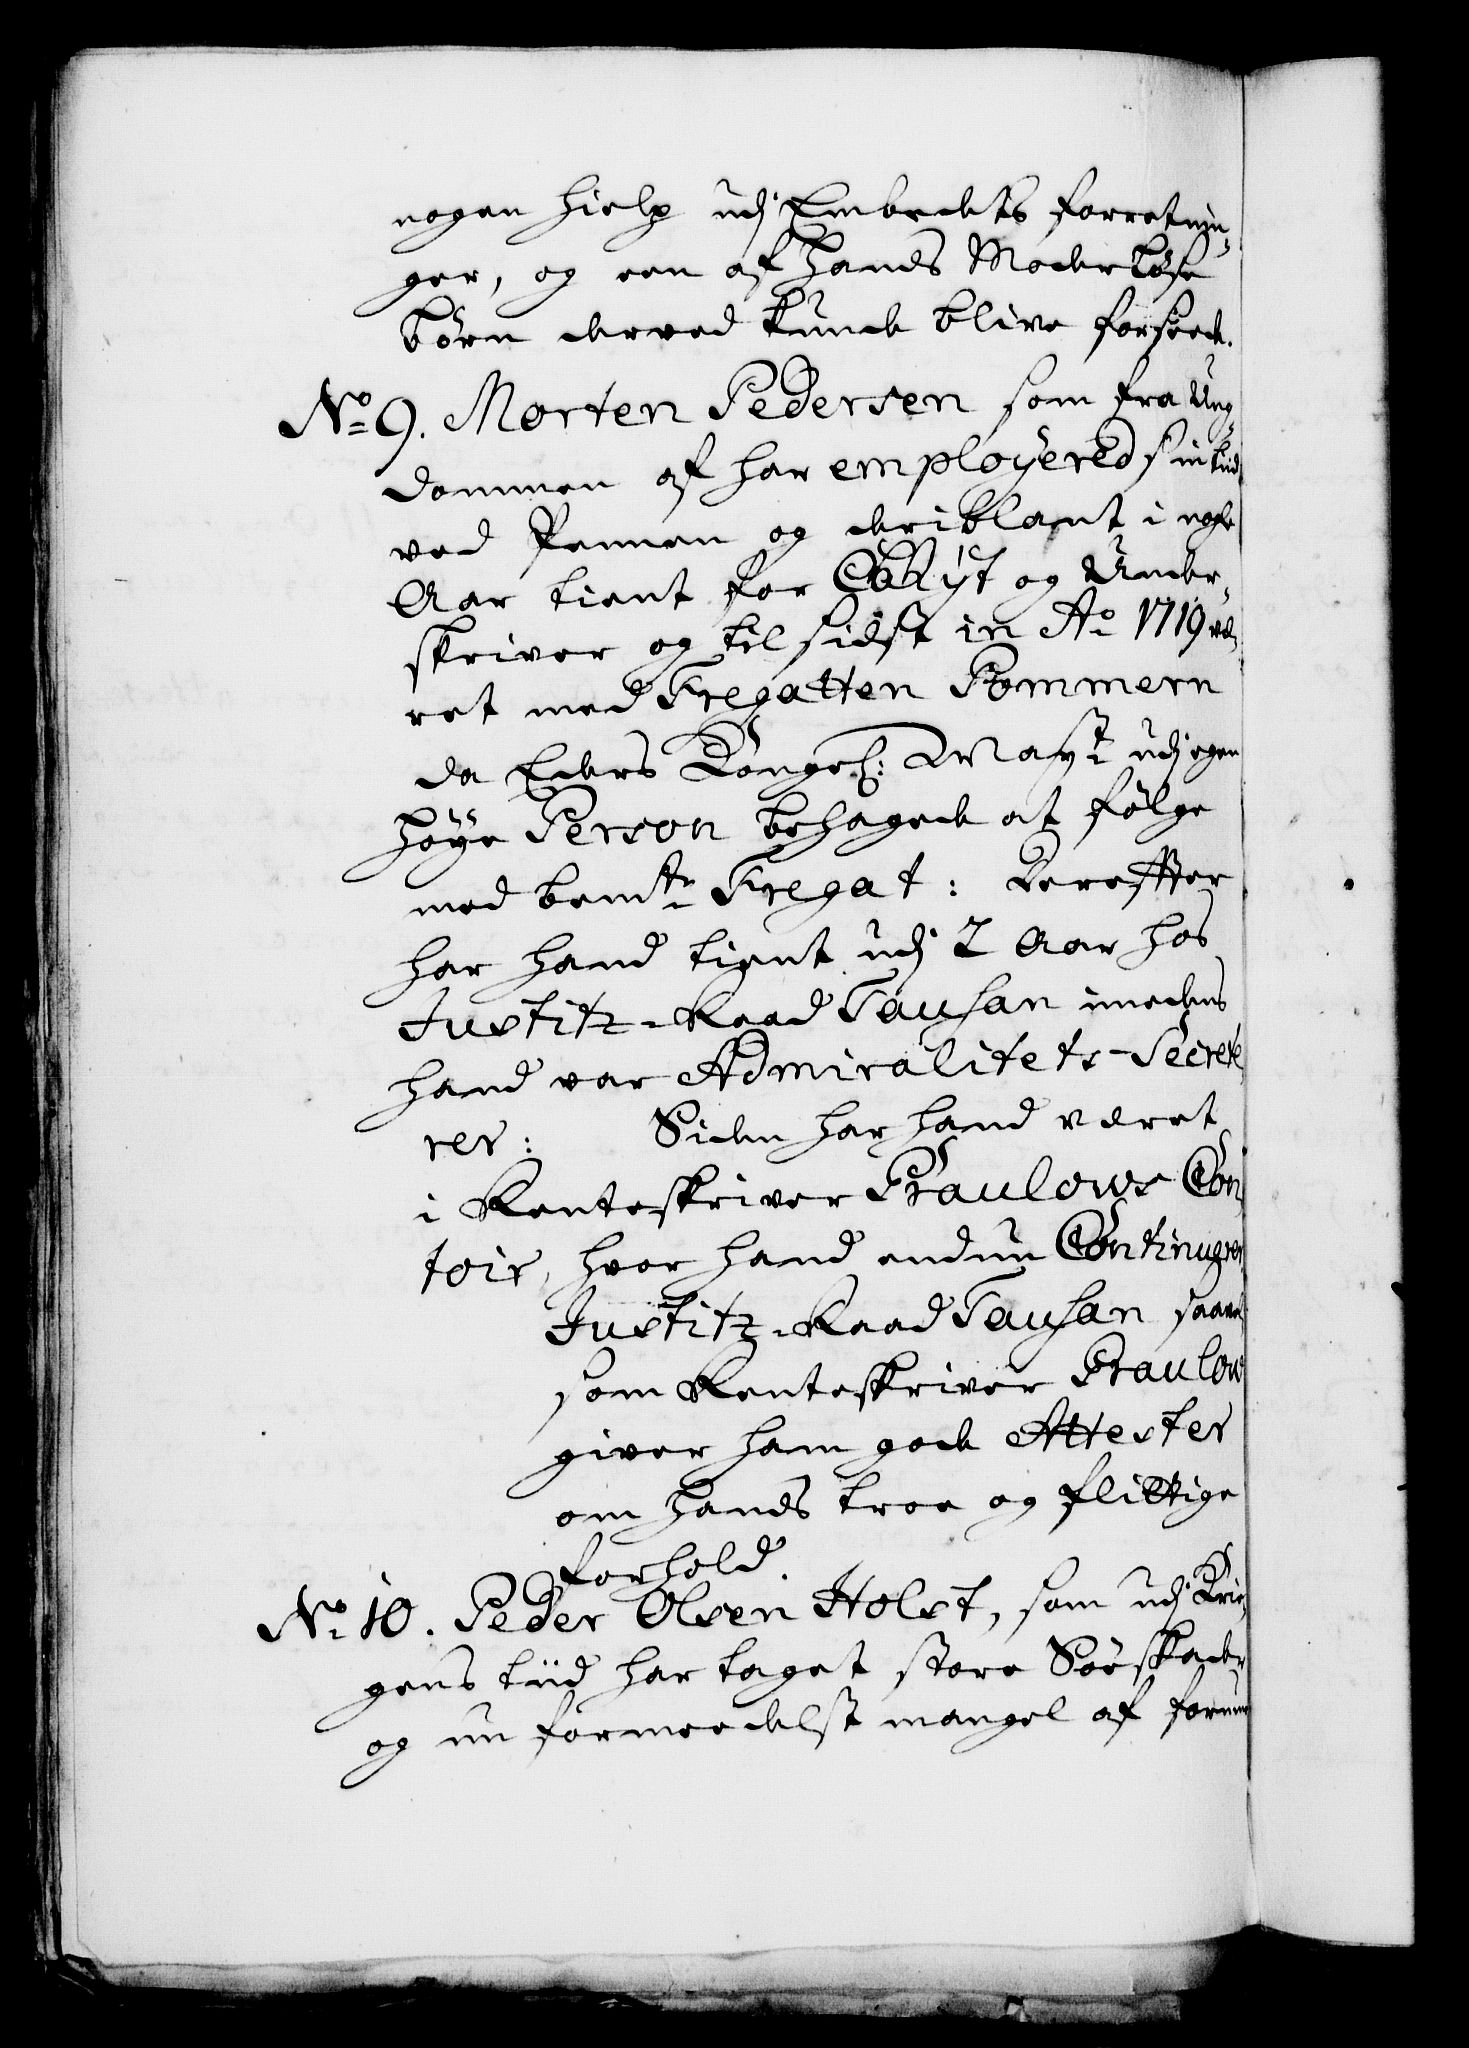 nogen hielp udj Embedets forretnin¬
ger, og een af hands Moderløse
børn derved kunde blive forsøed.
No 9. Morten Pedersen som fra Ung¬
dommen af har employered sin tiid
ved Pennen og deriblant i nogle
Aar tient for og Under¬
skriver og til sidst in Ao 1719 væ¬
ret med Fregatten Pommern
da Eders Kongel: Mayt udj egen
høye Person behagede at følge
med bemte Fregat: Derefter
har hand tient udj 2 Aar hos
Justitz-Raad Tausan imedens
hand var Admiralitets-Secrete
rer: Siden har hand været
i Renteskriver Paulows Con
toir, hvor hand endnu Continuerer
Justitz-Raad Tausan saavel
som Renteskriver Paulow
giver ham gode Attester
om hands troe og flittige
forhold
No 10. Peder Olsen Holst, som udj Krie¬
gens tiid har taget store Søeskader
og nu formedelst mangel af formue